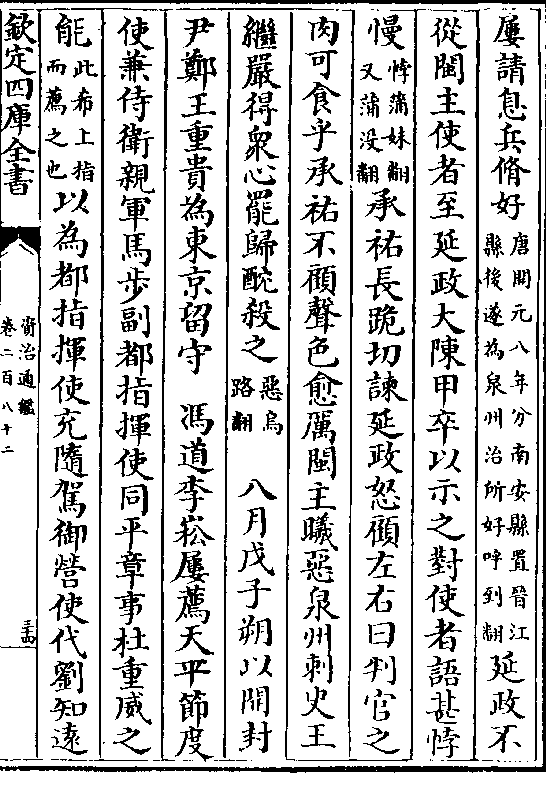 屢請息兵脩好唐開元八年分南安縣置晉江縣後遂為泉州治所好呼到翻延政不
從閩主使者至延政大陳甲卒以示之對使者語甚悖
慢悖蒲妹翻又蒲没翻承祐長跪切諫延政怒顧左右曰判官之
肉可食乎承祐不顧聲色愈厲閩主曦惡泉州刺史王
繼嚴得衆心罷歸酖殺之惡烏路翻 八月戊子朔以開封
尹鄭王重貴為東京留守 馮道李崧屢薦天平節度
使兼侍衛親軍馬步副都指揮使同平章事杜重威之
能此希上指而薦之也以為都指揮使充隨駕御營使代劉知遠
欽定四庫全書
資治通鑑
卷二百八十二